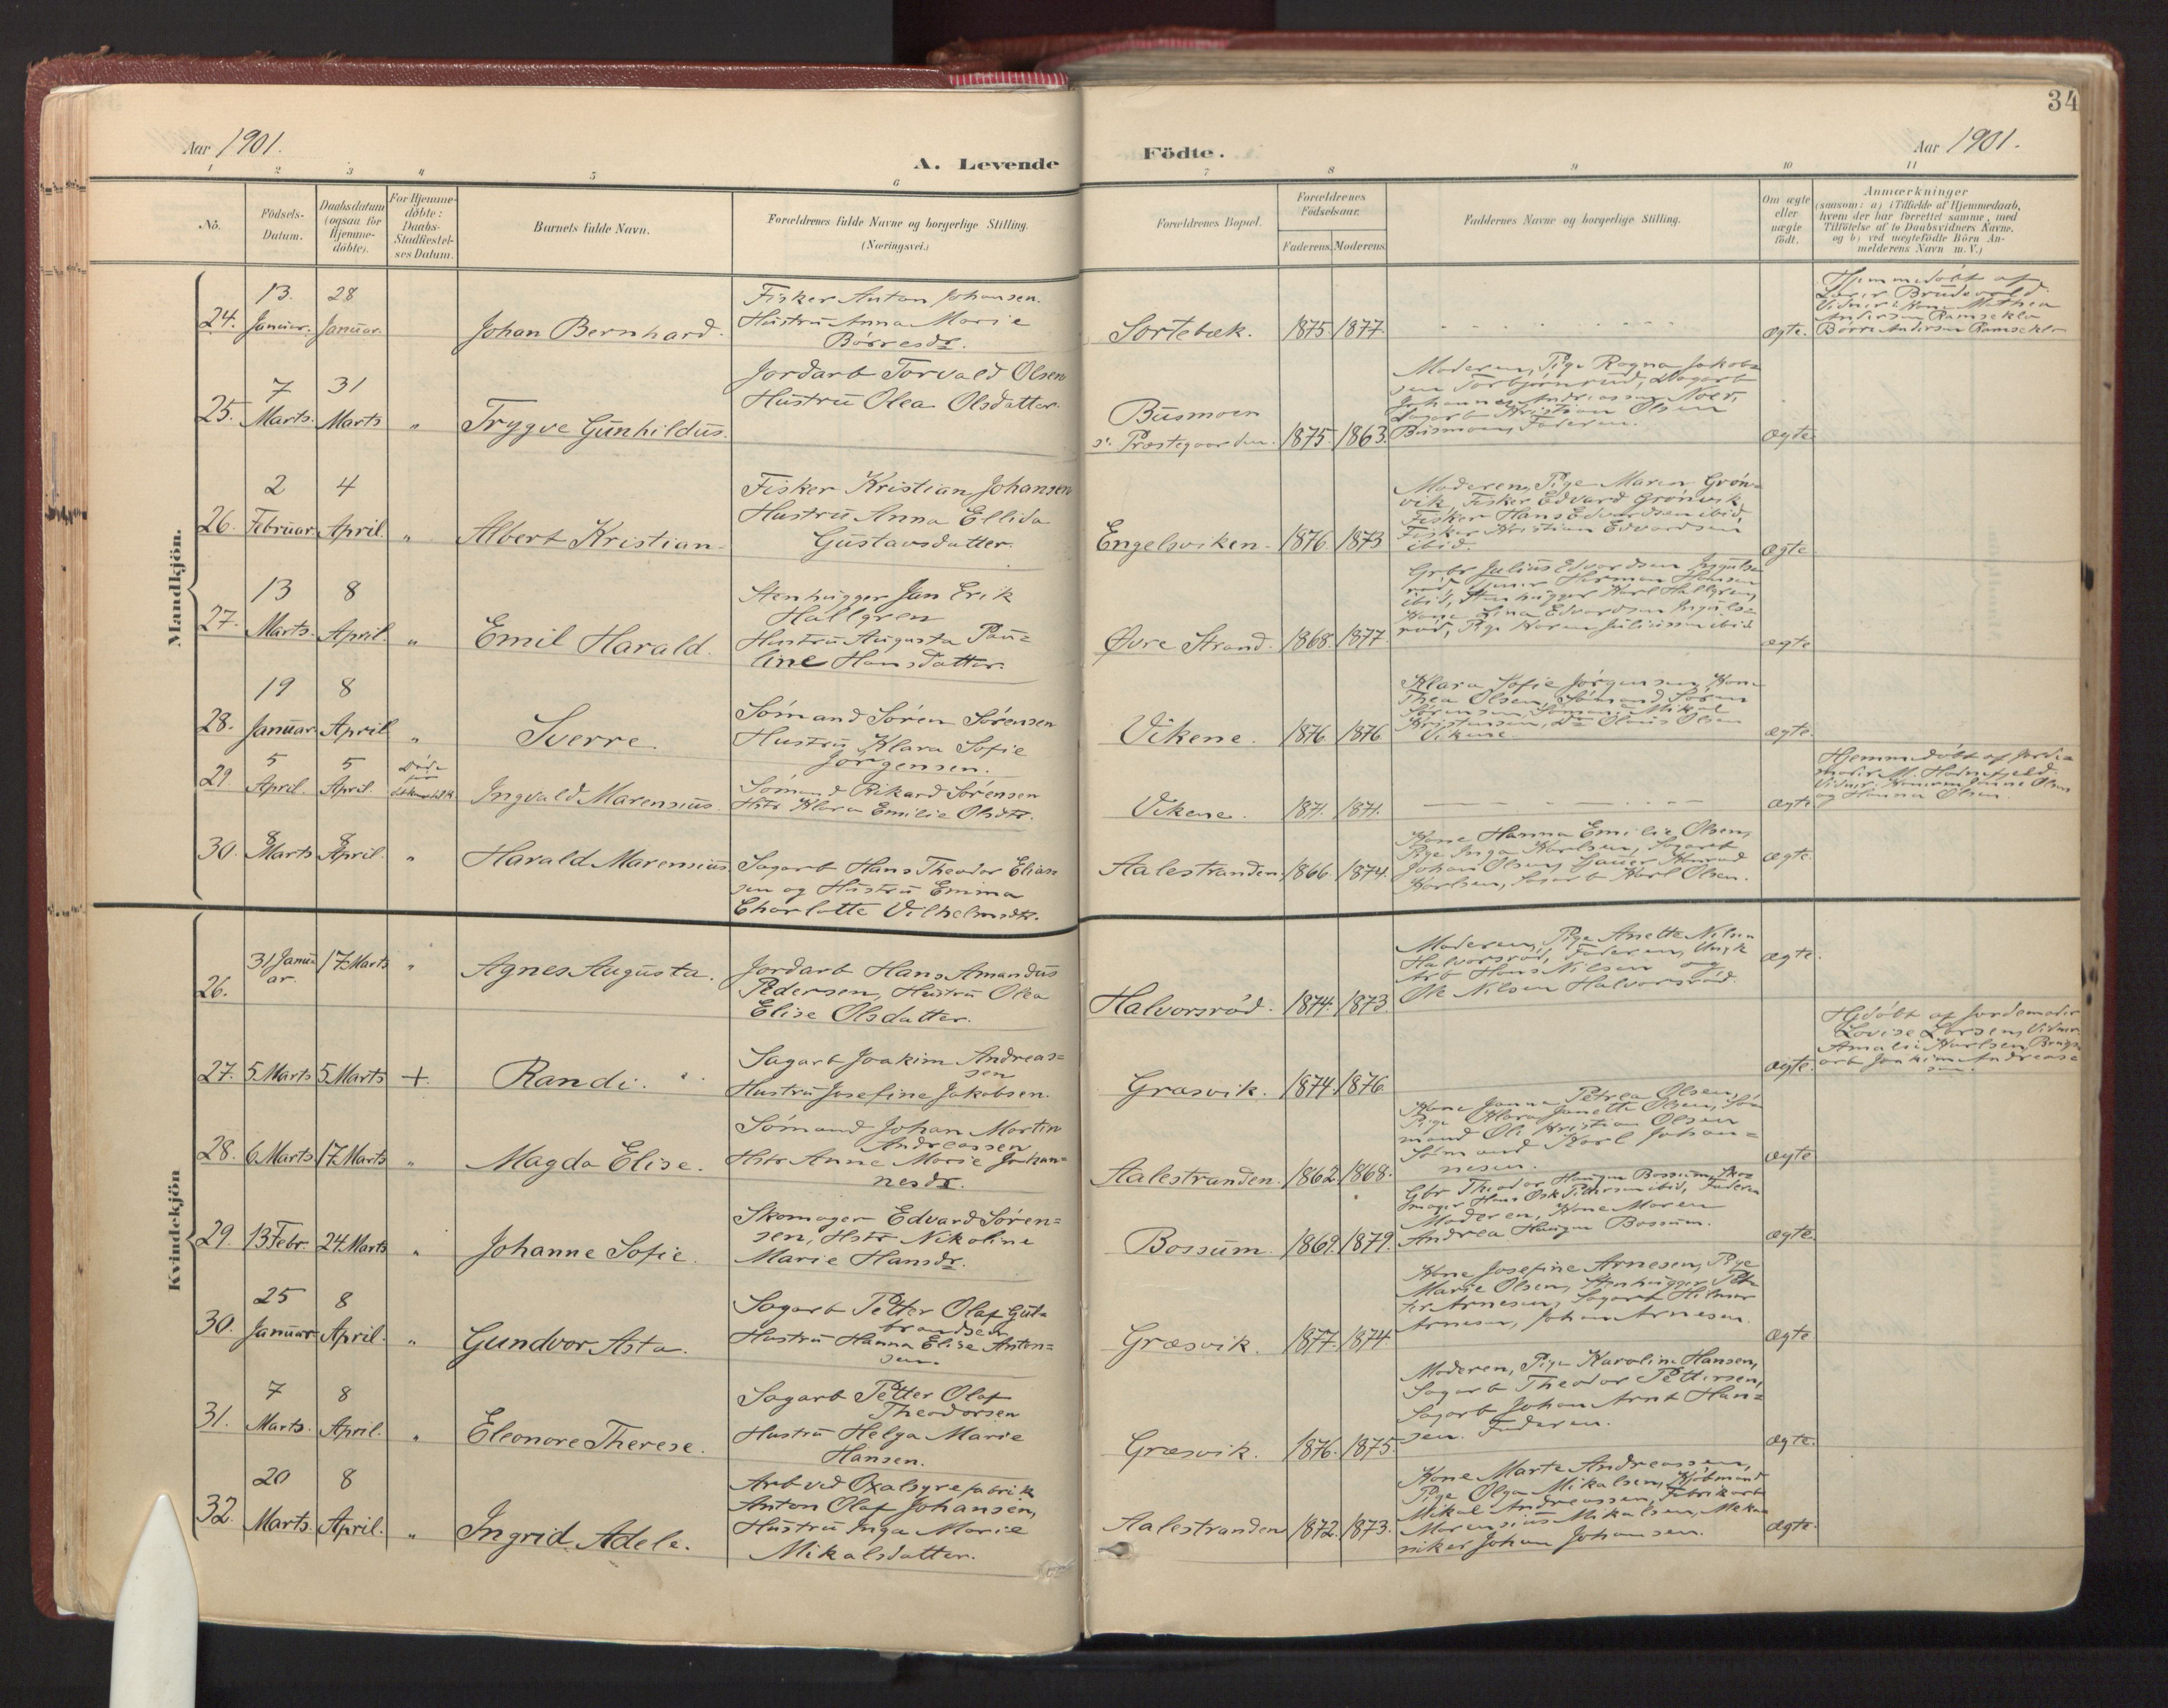 34
Aar 1901.
A. Levende Födte.
Aar 1901.
1 2 3 4 5 6 7 8 9 10 11
No.
Födsels-
Datum.
Daabsdatum
(ogsaa for
Hjemme-
döbte).
For Hjemme-
döbte:
Daabs-
Stadfæstel-
ses Datum.
Barnets fulde Navn.
Forældrenes fulde Navne og borgerlige Stilling.
(Næringsvei.)
Forældrenes Bopæl.
Forældrenes
Födselsaar.
Faderens. Moderens.
Faddernes Navne og borgerlige Stilling.
Om ægte
eller
uægte
födt.
Anmærkninger
(saasom: a) i Tilfælde af Hjemmedaab,
hvem der har forrettet samme, med
Tilföielse af to Daabsvidners Navne,
og b) ved uægtefödte Börn An-
melderens Navn m. V.)
Mandkjön.
24. 13. Januar. 28 Januar.
Johan Bernhard.
Fisker Anton Johansen.
Hustru Anna Marie
Börresdr.
Sortebæk. 1875 1877.
ægte.
Hjemmedöbt af
Lærer Brudevold.
Vidner: Kone Mathea
Andersen Ramseklo
Börre Andersen Ramseklo
25. 7 Marts. 31 Marts "
Trygve Gunhildus.
Jordarb Torvald Olsen
Hustru Olea Olsdatter.
Busmoen
s. Præstegaarden. 1875. 1863.
Moderen, Pige Ragna Jakob-
sen Torbjörnrud, Dagarb
Johannes Andreassen Noer,
Dagarb Kristian Olsen
Busmoen, Faderen.
ægte
26. 2 Februar. 4 April. "
Albert Kristian
Fisker Kristian Johansen
Hustru Anna Ellida
Gustavsdatter.
Engelsviken. 1876. 1873
Moderen, Pige Maren Grön-
vik, Fisker Edvard Grönvik,
Fisker Hans Edvardsen ibid,
Fisker Kristian Edvardsen
ibid.
ægte
27. 13 Marts. 8 April. "
Emil Harald.
Stenhugger Jan Erik
Hallgren
Hustru Augusta Pau-
line Hansdatter.
Øvre Strand. 1868. 1877.
Gbr Julius Edvardsen Inguls-
rud, Herman Hansen
ibid, Stenhugger Karl Hallgren,
Kone Lina Edvardsen Inguls-
rud, Pige Juliussen ibid
ægte
28. 19 Januar 8 April "
Sverre.
Sömand Sören Sörensen
Hustru Klara Sofie
Jörgensen.
Vikene. 1876. 1876.
Klara Sofie Jörgensen, Kone
Thea Olsen, Sömand Sören
Sörensen, Sömand Mikal
Kristensen, Do Olaus Olsen
Vikene.
ægte.
29. 5 April. 5 April. Döde
för
Ingvald Marensius.
Sömand Rikard Sörensen
Hstr Klara Emilie Olsdtr.
Vikene. 1871. 1871.
ægte
Hjemmedöbt af Jorde-
moder M. Hodnefjeld.
Vidner: Olsen
og Hanna Olsen.
30. 8 Marts 8 April. "
Harald Marensius.
Sagarb Hans Theodor Elias-
sen og Hustru Emma
Charlotte Vilhelmsdtr.
Aalestranden. 1866. 1874.
Kone Hanna Emilie Olsen,
Pige Inga Karlsen, Sagarb
Johan Olsen, Konrad
Karlsen, Sagarb Karl Olsen.
ægte.
Kvindekjön
26. 31 Janu-
ar. 17 Marts "
Agnes Augusta.
Jordarb Hans Amandus
Pedersen, Hustru Olea
Elise Olsdatter.
Halvorsröd. 1874. 1873.
Moderen, Pige Anette Nilsen
Halvorsröd, Faderen, Ungk
Arb Hans Nilsen og
Ole Nilsen Halvorsröd.
ægte.
27. 5 Marts 5 Marts +
Randi.
Sagarb Joakim Andreas-
sen
Hustru Josefine Jakobsen.
Græsvik. 1874. 1876.
ægte.
Hjdöbt af Jordemoder
Lovise Larsen, Vidner
Amalie Karlsen
arb Joakim Andreas-
sen.
28. 6 Marts 17 Marts "
Magda Elise.
Sömand Johan Martin
Andreassen
Hstr Anne Marie Johan-
nesdr.
Aalestranden. 1862. 1868.
Kone Janna Petrea Olsen,
Pige Klara Janette Olsen, Sö-
mand Ole Kristian Olsen
Sömand Karl Johan-
nesen.
ægte
29. 13 Febr. 24 Marts "
Johanne Sofie.
Skomager Edvard Sören-
sen, Hstr Nikoline
Marie Hansdr.
Bossum. 1869. 1879.
Gbr Theodor Haugen Bossum, Sko-
mager Hans Osk Pettersen ibid, Faderen
Moderen, Kone Maren
Andrea Haugen Bossum.
ægte.
30. 25 Januar 8 April. "
Gundvor Asta.
Sagarb Petter Olaf Gul-
brandsen
Hustru Hanna Elise Anton-
sen.
Græsvik. 1877. 1874.
Kone Josefine Arnesen, Pige
Marie Olsen, Stenhugger Pet-
ter Arnesen, Sagarb Hilmar
Arnesen, Johan Arnesen.
ægte
31. 7 Marts. 8 April. "
Eleonore Therese.
Sagarb Petter Olaf
Theodorsen
Hustru Helga Marie
Hansen.
Græsvik. 1876. 1875.
Moderen, Pige Karoline Hansen,
Sagarb Theodor Pettersen,
Sagarb Johan Arnt Han-
sen. Faderen.
ægte.
32. 20 Marts. 8 April. "
Ingrid Adele.
Arb ved Oxalsyrefabrik
Anton Olaf Johansen,
Hustru Inga Marie
Mikalsdatter.
Aalestranden 1872. 1873.
Kone Marte Andreassen,
Pige Olga Mikalsen, Kjöbmand
Mikal Andreassen, Fabrikarb
Marensius Mikalsen, Meka-
niker Johan Johansen.
ægte.